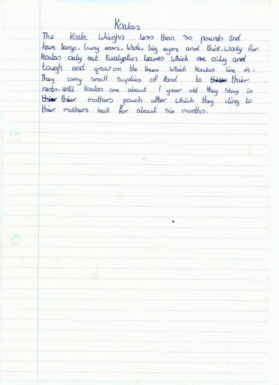 Koalas
The Koala Weighs less than 30 pounds and
have large, furry ears. Wide big eyes and thick wooly fur.
Koalas only eat Eucalyptus leaves which are oily and
tough and grow on the trees which koalas live in.
they carry small supplies of food to thier
nests. until koalas are about 1 year old they stay in
thier mothers pouch after which they cling to
thier mothers back for about six months.